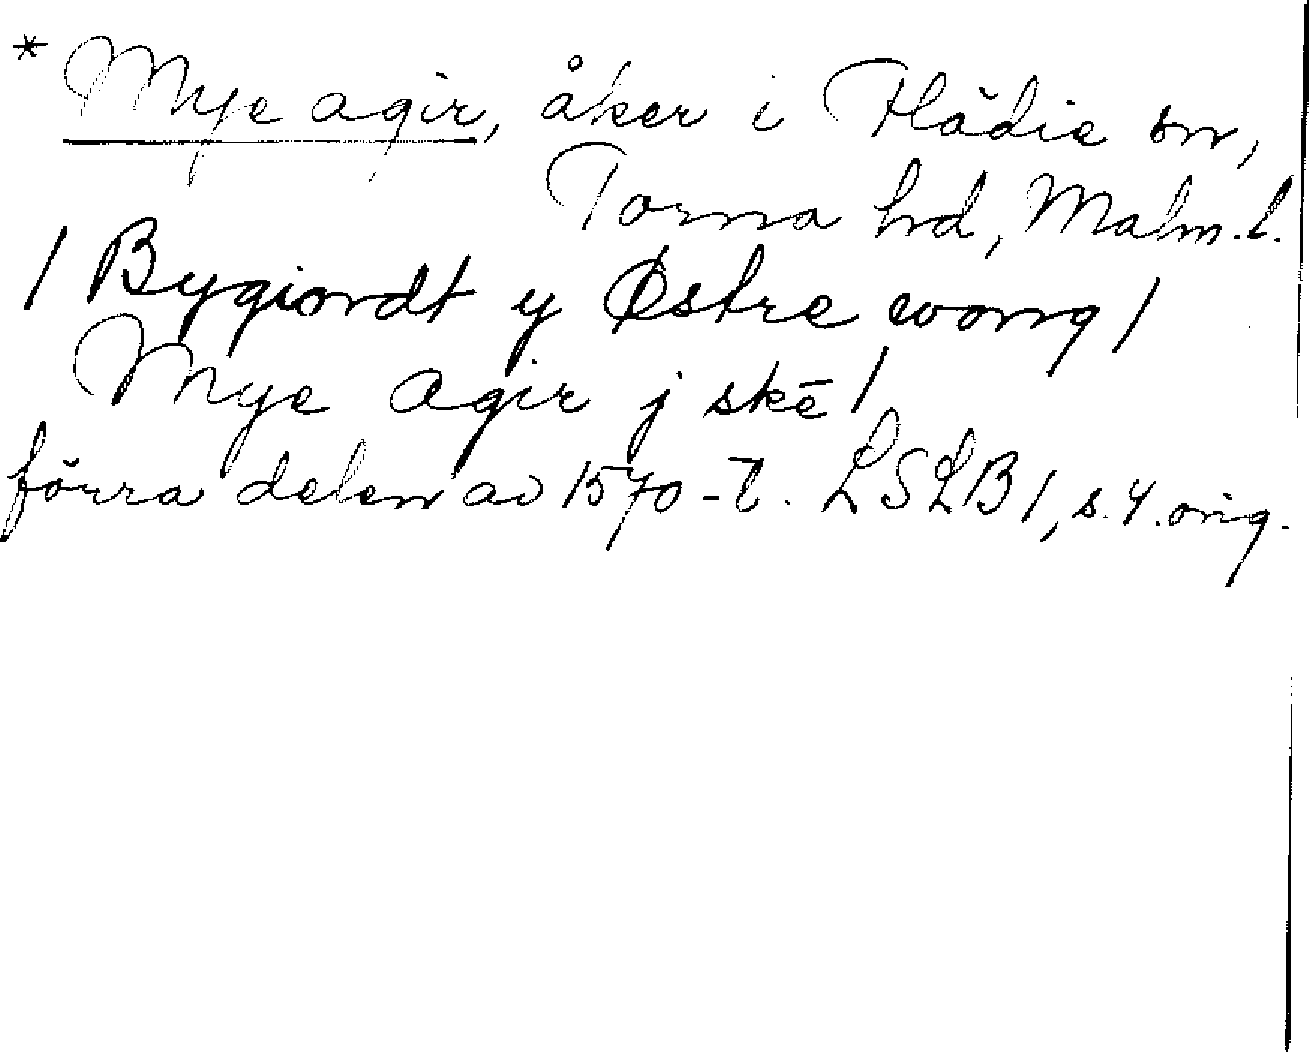 * Mye agir, åker i Flädie sn,
Torna hd, Malm.l.
/ Bygiordt y Østre wong /
Mye agir j skē /
förra delen av 1570-t. LSLB 1, s. 4. orig.